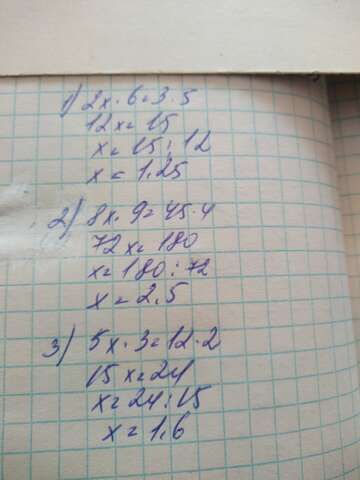 1) 2x · 6 = 3 · 5
12x = 15
x = 15 : 12
x = 1,25
2) 8x · 9 = 45 · 4
72x = 180
x = 180 : 72
x = 2,5
3) 5x · 3 = 12 · 2
15x = 24
x = 24 : 15
x = 1,6